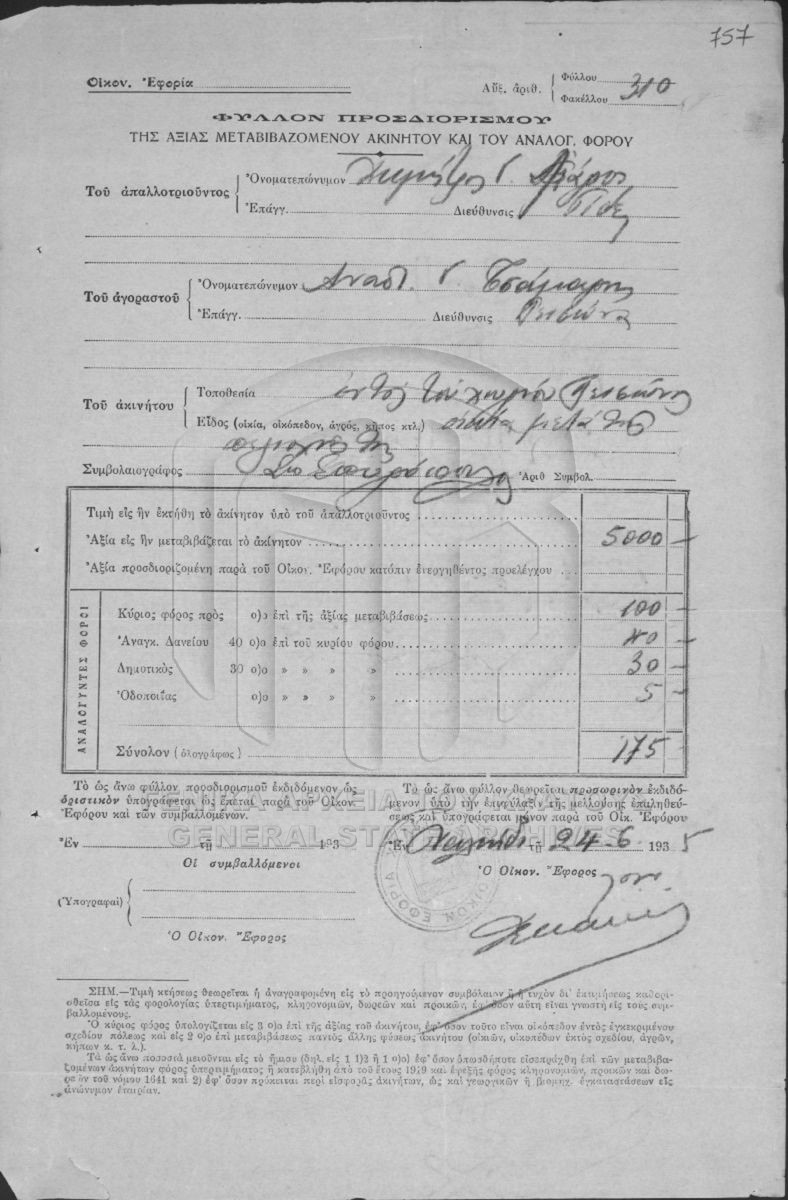 757
Οἰκον. Ἐφορία
Αὔξ. ἀριθ. Φύλλου 310
Φακέλλου
ΦΥΛΛΟΝ ΠΡΟΣΔΙΟΡΙΣΜΟΥ
ΤΗΣ ΑΞΙΑΣ ΜΕΤΑΒΙΒΑΖΟΜΕΝΟΥ ΑΚΙΝΗΤΟΥ ΚΑΙ ΤΟΥ ΑΝΑΛΟΓ. ΦΟΡΟΥ
Τοῦ ἀπαλλοτριοῦντος
Ὀνοματεπώνυμον Δημήτριος Γ.
Ἐπάγγ. Διεύθυνσις
Τοῦ ἀγοραστοῦ
Ὀνοματεπώνυμον Αναστ. Γ.
Ἐπάγγ. Διεύθυνσις
Τοῦ ἀκινήτου
Τοποθεσία ἐντὸς τοῦ χωρίου
Εἶδος (οἰκία, οἰκόπεδον, ἀγρός, κῆπος κτλ.) οἰκία μετὰ τῆς
περιοχῆς της
Συμβολαιογράφος Ἀριθ Συμβολ.
Τιμὴ εἰς ἣν ἐκτήθη τὸ ἀκίνητον ὑπὸ τοῦ ἀπαλλοτριοῦντος
Ἀξία εἰς ἣν μεταβιβάζεται τὸ ἀκίνητον 5000 —
Ἀξία προσδιοριζομένη παρὰ τοῦ Οἰκον. Ἐφόρου κατόπιν ἐνεργηθέντος προελέγχου
ΑΝΑΛΟΓΟΥΝΤΕΣ ΦΟΡΟΙ
Κύριος φόρος πρὸς ο)ο ἐπὶ τῆς ἀξίας μεταβιβάσεως 100 —
Ἀναγκ. Δανείου 40 ο)ο ἐπὶ τοῦ κυρίου φόρου 40 —
Δημοτικὸς 30 ο)ο » » » » 30 —
Ὁδοποιΐας ο)ο » » » » 5 —
Σύνολον (ὁλογράφως) 175 —
Τὸ ὡς ἄνω φύλλον προσδιορισμοῦ ἐκδιδόμενον ὡς
ὁριστικὸν ὑπογράφεται ὡς ἕπεται παρὰ τοῦ Οἰκον.
Ἐφόρου καὶ τῶν συμβαλλομένων.
Ἐν τῇ 193
Οἱ συμβαλλόμενοι
(Ὑπογραφαὶ)
Ὁ Οἰκον. Ἔφορος
Τὸ ὡς ἄνω φύλλον θεωρεῖται προσωρινὸν ἐκδιδό-
μενον ὑπὸ τὴν ἐπιφύλαξιν τῆς μελλούσης ἐπαληθεύ-
σεως καὶ ὑπογράφεται μόνον παρὰ τοῦ Οἰκ. Ἐφόρου
Ἐν τῇ 24-6 1935
Ὁ Οἰκον. Ἔφορος
ΓΕΝΙΚΑ ΑΡΧΕΙΑ ΤΟΥ ΚΡΑΤΟΥΣ
GENERAL STATE ARCHIVES
ΣΗΜ.—Τιμὴ κτήσεως θεωρεῖται ἡ ἀναγραφομένη εἰς τὸ προηγούμενον συμβόλαιον ἢ ἡ τυχὸν δι' ἐκτιμήσεως καθορι-
σθεῖσα εἰς τὰς φορολογίας ὑπερτιμήματος, κληρονομιῶν, δωρεῶν καὶ προικῶν, ἐφ' ὅσον αὕτη εἶναι γνωστὴ εἰς τοὺς συμ-
βαλλομένους.
Ὁ κύριος φόρος ὑπολογίζεται εἰς 3 ο)ο ἐπὶ τῆς ἀξίας τοῦ ἀκινήτου, ἐφ' ὅσον τοῦτο εἶναι οἰκόπεδον ἐντὸς ἐγκεκριμένου
σχεδίου πόλεως καὶ εἰς 2 ο)ο ἐπὶ μεταβιβάσεως παντὸς ἄλλης φύσεως ἀκινήτου (οἰκιῶν, οἰκοπέδων ἐκτὸς σχεδίου, ἀγρῶν,
κήπων κ. τ. λ.).
Τὰ ὡς ἄνω ποσοστὰ μειοῦνται εἰς τὸ ἥμισυ (δηλ. εἰς 1 1)2 ἢ 1 ο)ο) ἐφ' ὅσον ὁπωσδήποτε εἰσεπράχθη ἐπὶ τῶν μεταβιβα-
ζομένων ἀκινήτων φόρος ὑπερτιμήματος ἢ κατεβλήθη ἀπὸ τοῦ ἔτους 1919 καὶ ἐφεξῆς φόρος κληρονομιῶν, προικῶν καὶ δω-
ρεῶν τοῦ νόμου 1641 καὶ 2) ἐφ' ὅσον πρόκειται περὶ εἰσφορᾶς ἀκινήτων, ὡς καὶ γεωργικῶν ἢ βιομηχ. ἐγκαταστάσεων εἰς
ἀνώνυμον ἑταιρίαν.